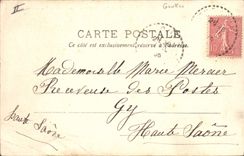 II
CARTE POSTALE
Ce côté est exclusivement réservé à l'adresse
Mademoiselle Marie Mercier
Receveuse des Postes
Gy
Haute Saône
Haute Saône